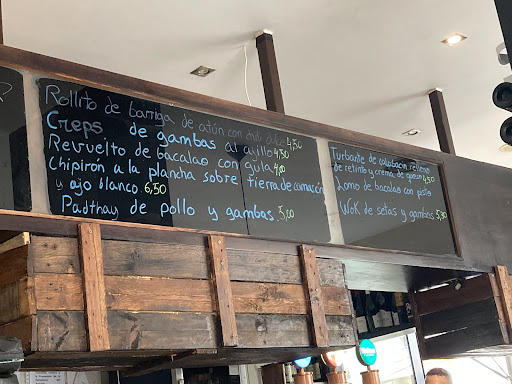 Rollito de barriga de atún con chili dulce 4,50
Creps de gambas al ajillo 4,50
Revuelto de bacalao con gula 4,00
Chipirón a la plancha sobre tierra de
y ajo blanco. 6,50
Padthay de pollo y gambas. 5,00
Turbante de calabacín relleno
de retinto y crema de queso 4,50
Lomo de bacalao con pisto
Wok de setas y gambas 5,50